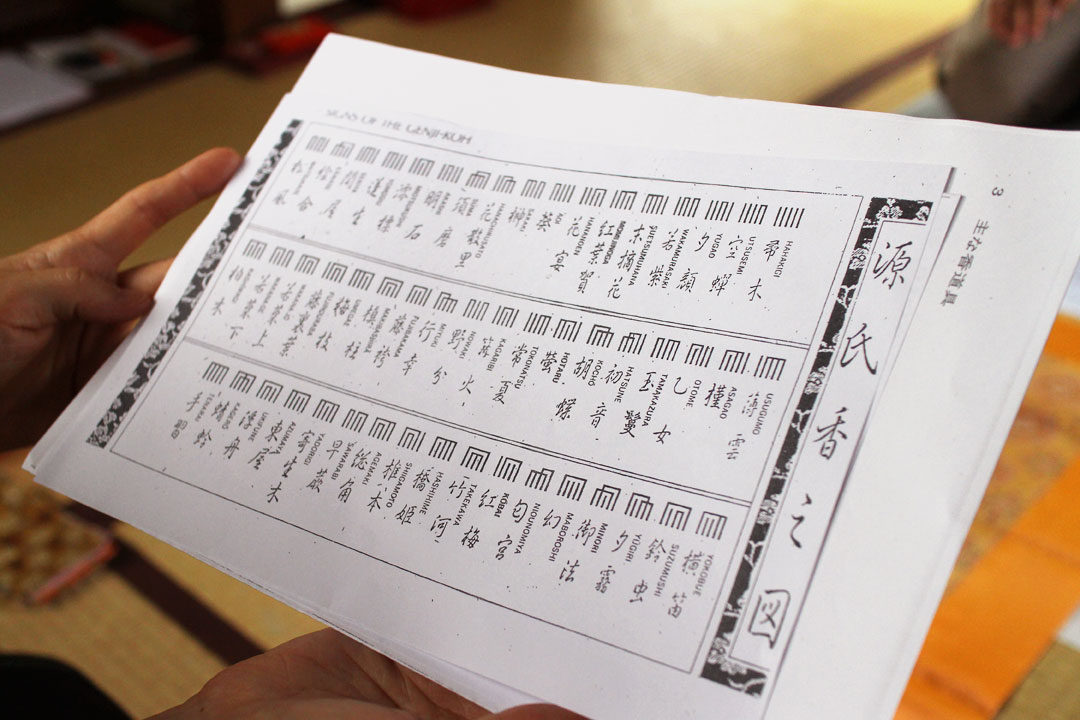 3 主な香道具
SIGNS OF THE GENJI-KOH
源氏香之図
HAHAKIGI
帚木
UTSUSEMI
空蝉
YUGAO
夕顔
WAKAMURASAKI
若紫
SUETSUMUHANA
末摘花
MOMIJINOGA
紅葉賀
HANANOEN
花宴
葵
榊
HANACHIRUSATO
花散里
須磨
明石
澪標
蓬生
関屋
絵合
松風
USUGUMO
薄雲
ASAGAO
槿
OTOME
乙女
TAMAKAZURA
玉鬘
HATSUNE
初音
KOCHO
胡蝶
HOTARU
螢
TOKONATSU
常夏
KAGARIBI
篝火
NOWAKI
野分
MIYUKI
行幸
FUJIBAKAMA
藤袴
槙柱
UMEGAE
梅枝
藤裏葉
若菜上
若菜下
柏木
YOKOBUE
横笛
SUZUMUSHI
鈴虫
YUGIRI
夕霧
MINORI
御法
MABOROSHI
幻
NIOUNOMIYA
匂宮
KOBAI
紅梅
TAKEKAWA
竹河
HASHIHIME
橋姫
SHIGAMOTO
椎本
AGEMAKI
総角
SAWARABI
早蕨
YADORIGI
寄生木
AZUMAYA
東屋
UKIFUNE
浮舟
KAGERO
蜻蛉
手習